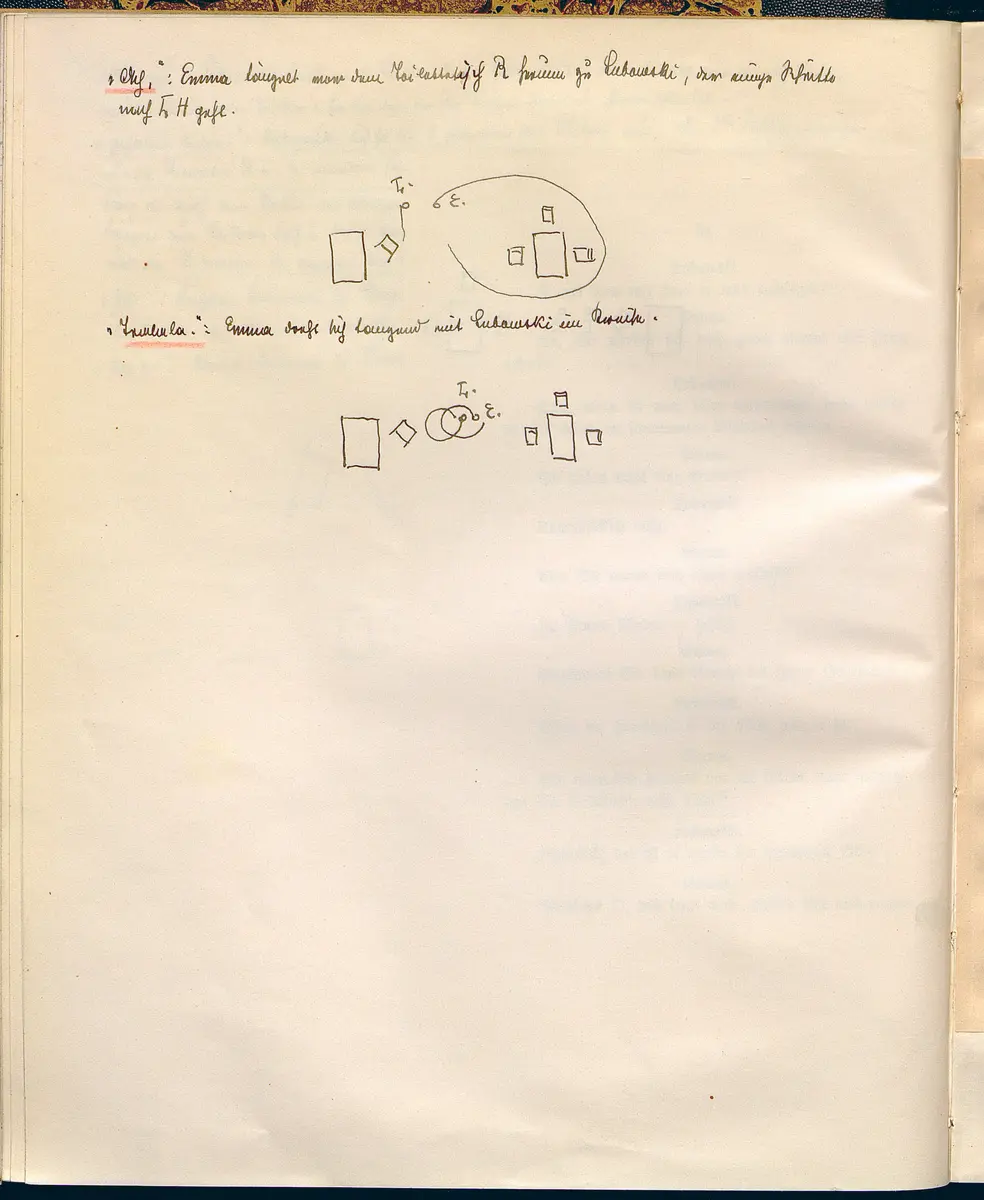 „Ach,“: Emma tänzelt vom dem Toilettetisch R herum zu Lubowski, der einige Schritte
nach L H geht.
L.
E.
„Tralala.“: Emma dreht sich tanzend mit Lubowski im Kreise.
L.
E.